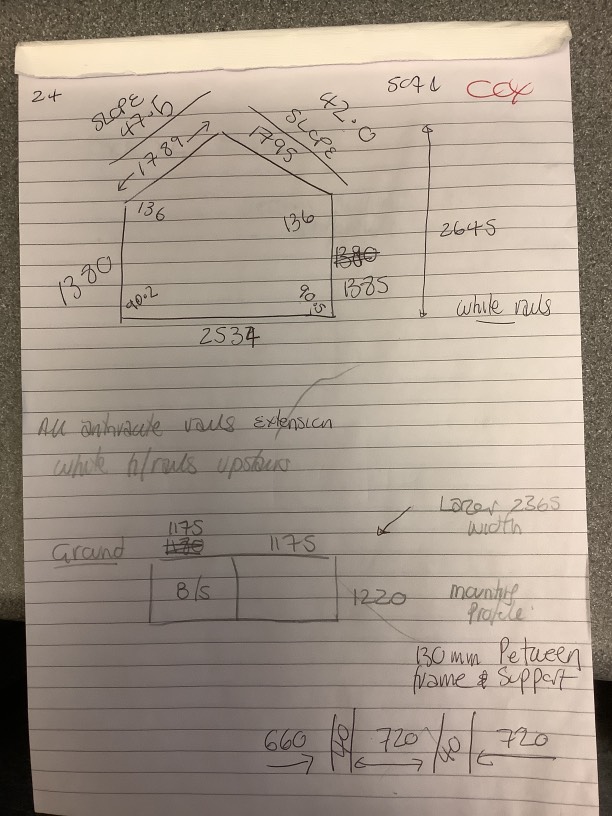 24
5071 COX
SLOPE 47.5
SLOPE 42.0
1789
1795
136
136
2645
1380
1380
1385
90.2
90.5
white rails
2534
All anthracite rails Extension
white h/rails upstairs
Lazer 2365
width
1175
1180
1175
Ground
B/S
1220
mounting
Profile
130mm Between
frame & Support
660 40 720 40 720